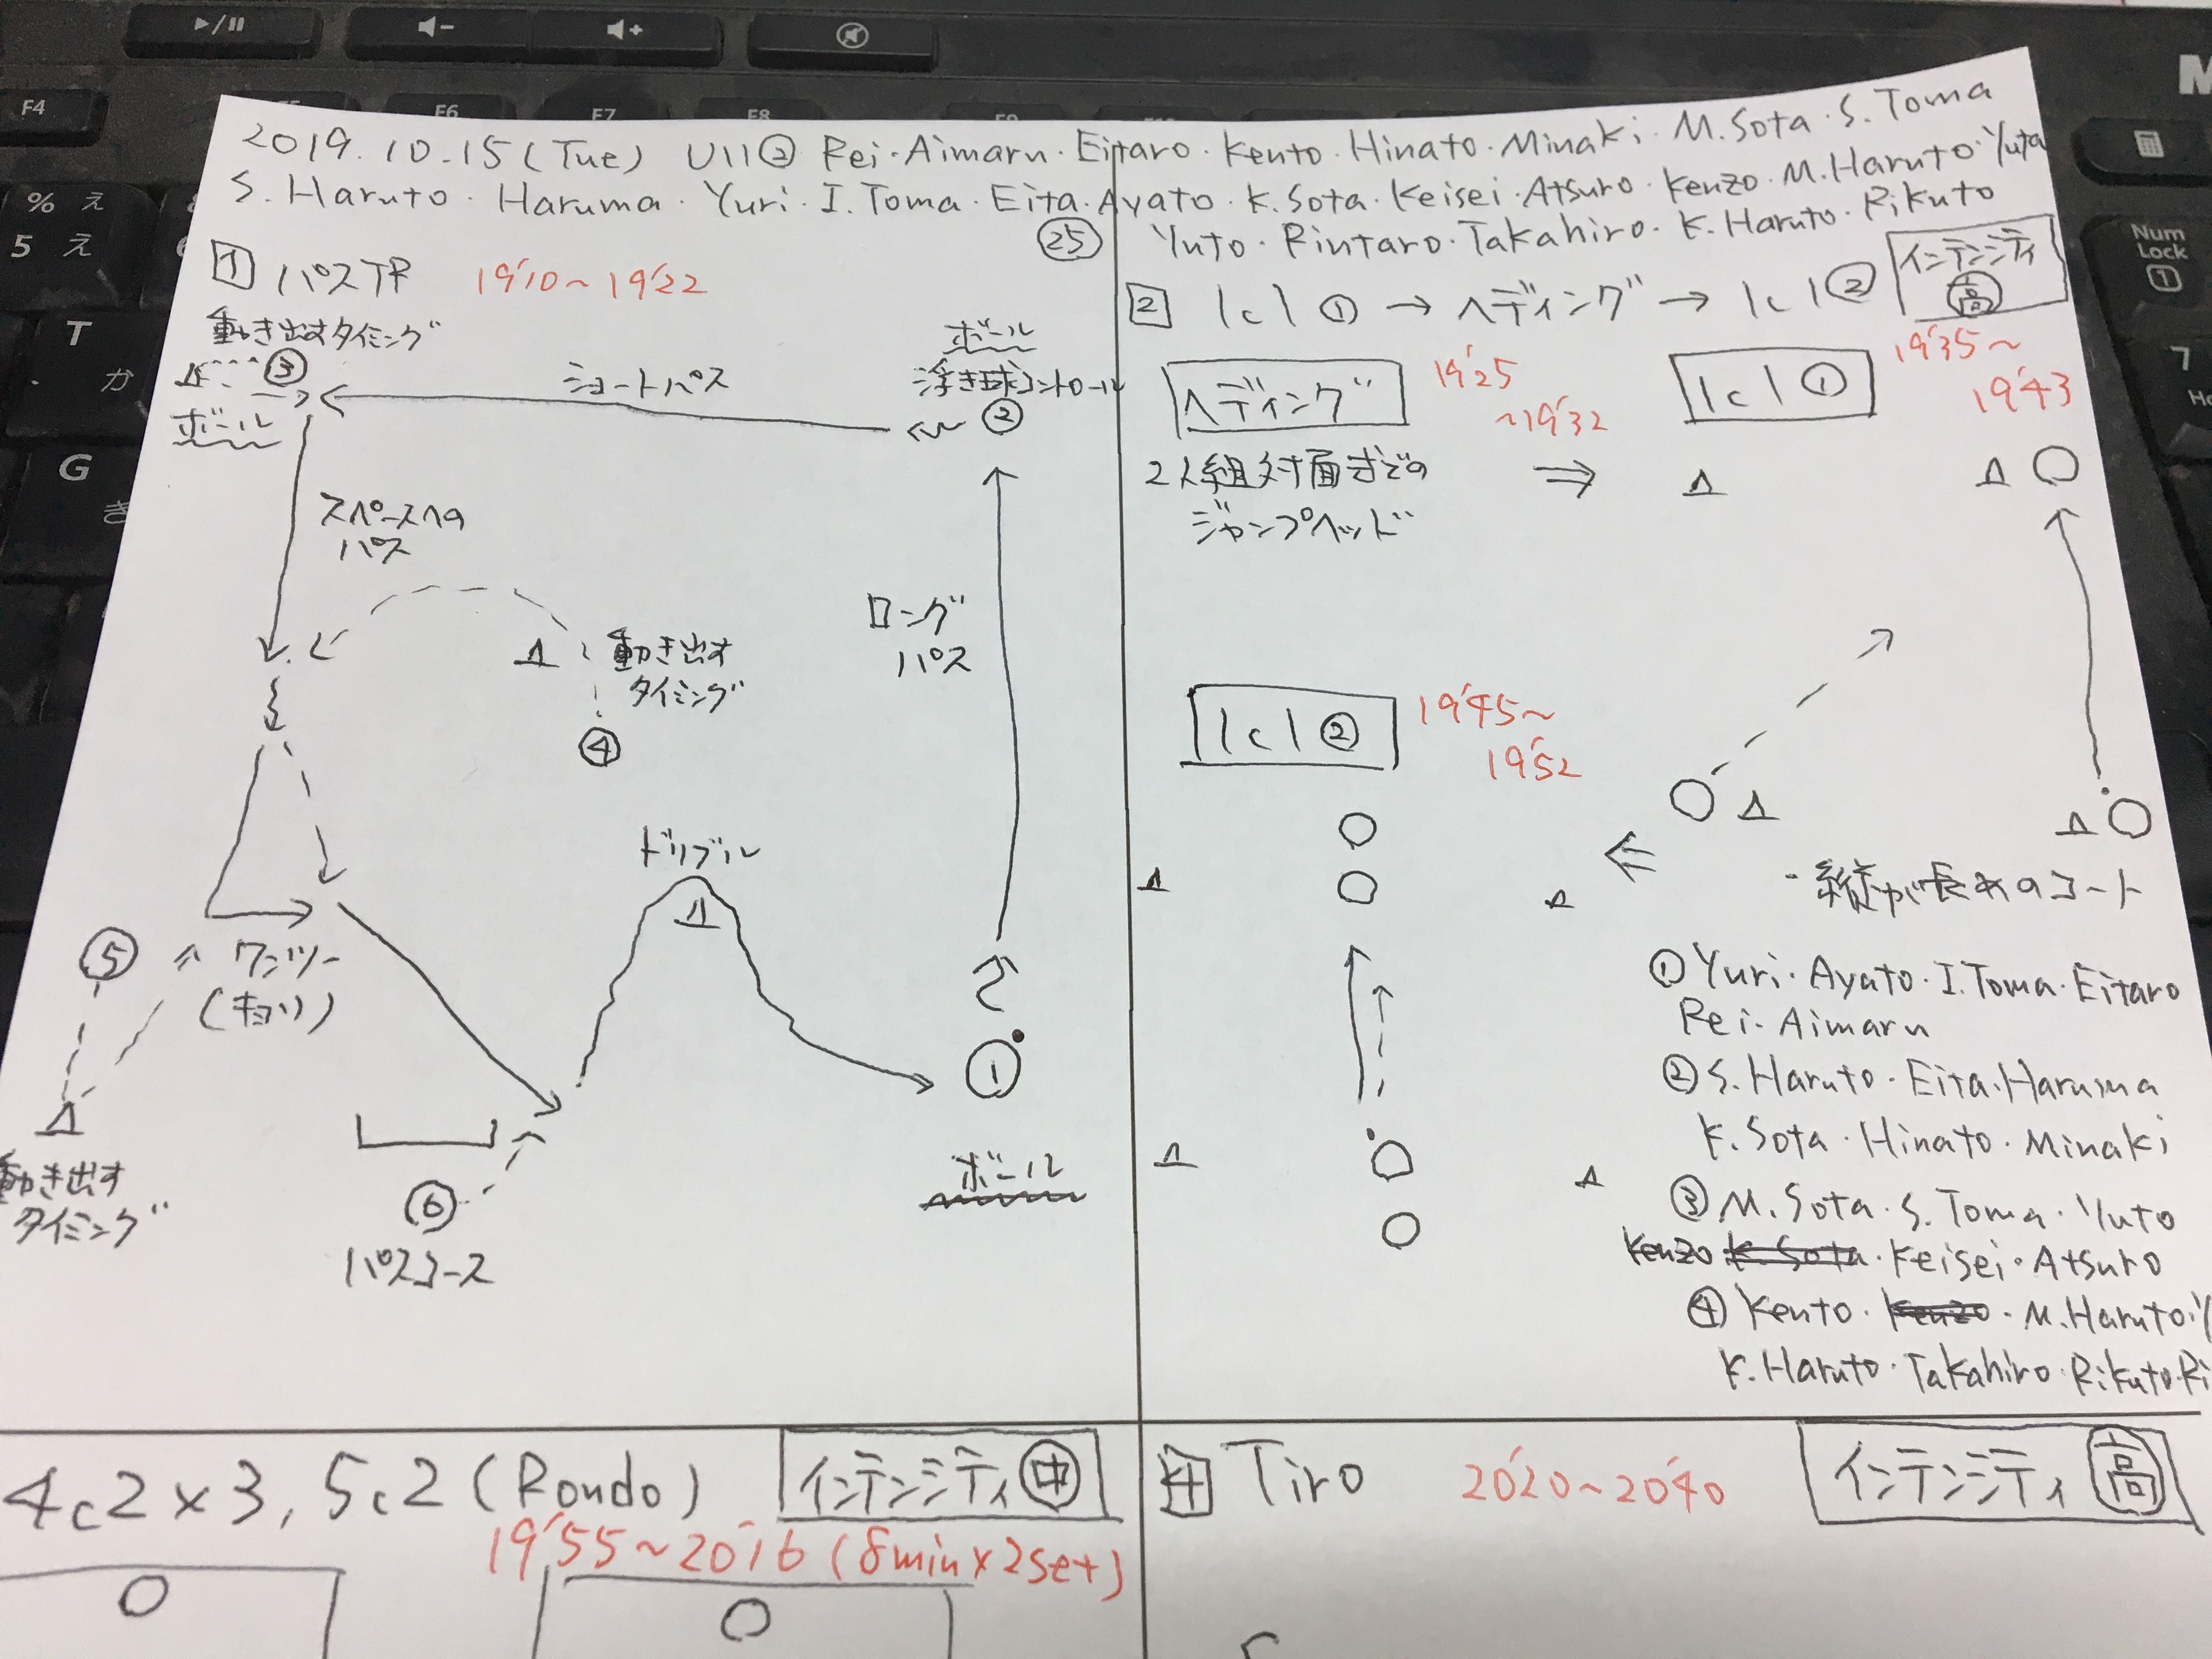 2019.10.15(Tue) U11② Rei・Aimaru・Eitaro・Kento・Hinato・Minaki・M.Sota・S.Toma
S.Haruto・Haruma・Yuri・I.Toma・Eita・Ayato・K.Sota・Keisei・Atsuro・Kenzo・M.Haruto・Yuta
㉕ Yuto・Rintaro・Takahiro・K.Haruto・Rikuto
1 パスTR 19'10〜19'22
動き出すタイミング
③
ボール
ショートパス
ボール
浮き球コントロール
②
スペースへの
パス
動き出す
タイミング
④
ロング
パス
ドリブル
⑤
ワンツー
(キョリ)
動き出す
タイミング
⑥
パスコース
①
ボール
2 1c1① → ヘディング → 1c1②
インテンシティ
高
ヘディング 19'25
〜19'32
2人組対面式での
ジャンプヘッド
⇒
1c1① 19'35〜
19'43
1c1② 19'45〜
19'52
・縦が長めのコート
①Yuri・Ayato・I.Toma・Eitaro
Rei・Aimaru
②S.Haruto・Eita・Haruma
K.Sota・Hinato・Minaki
③M.Sota・S.Toma・Yuto
Kenzo K.Sota・Keisei・Atsuro
④Kento・Kenzo・M.Haruto・
K.Haruto・Takahiro・Rikuto・Ri
4c2×3, 5c2(Rondo) インテンシティ中
19'55〜20'16(8min×2set)
4 Tiro 20'20〜20'40 インテンシティ高
F4
F6
F7
F8
% え
5 え
T
か
G
き
Num
Lock
1
7
M